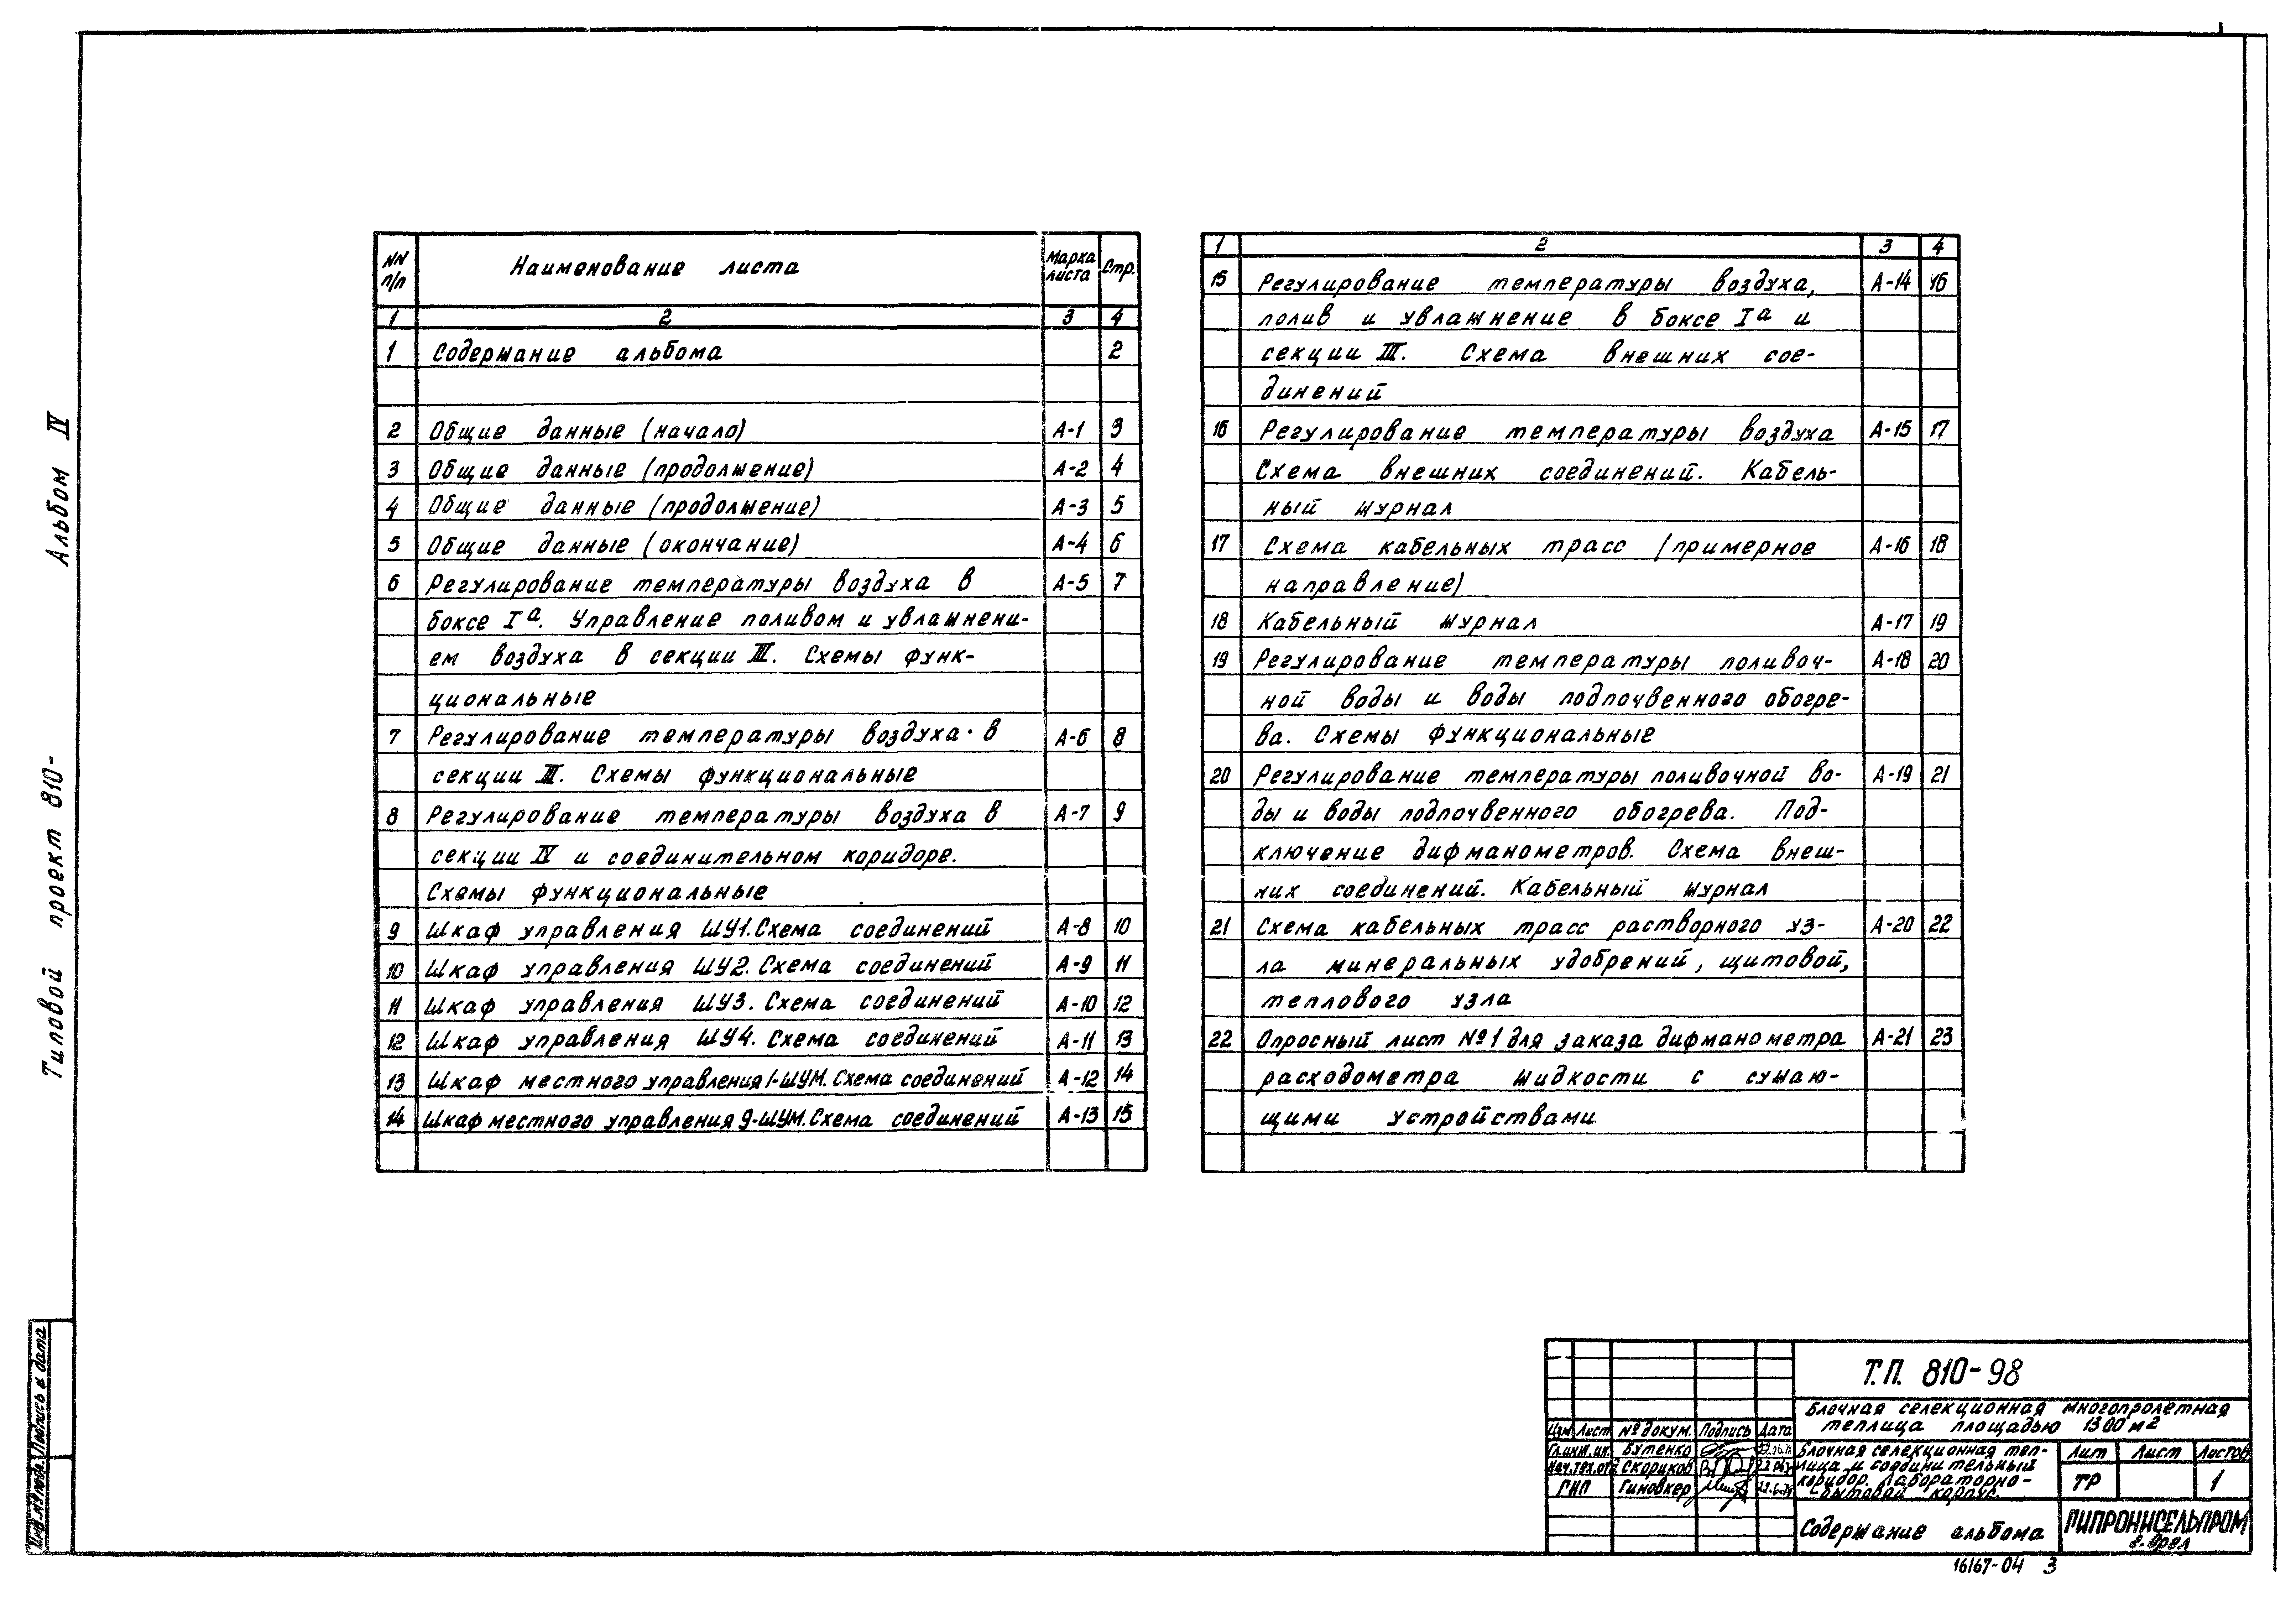 Альбом IV
Типовой проект 810-
NN п/п Наименование листа Марка листа Стр.
1 2 3 4
1 Содержание альбома 2
2 Общие данные (начало) А-1 3
3 Общие данные (продолжение) А-2 4
4 Общие данные (продолжение) А-3 5
5 Общие данные (окончание) А-4 6
6 Регулирование температуры воздуха в А-5 7
боксе Iа. Управление поливом и увлажнени-
ем воздуха в секции III. Схемы функ-
циональные
7 Регулирование температуры воздуха в А-6 8
секции III. Схемы функциональные
8 Регулирование температуры воздуха в А-7 9
секции IV и соединительном коридоре.
Схемы функциональные
9 Шкаф управления ШУ1. Схема соединений А-8 10
10 Шкаф управления ШУ2. Схема соединений А-9 11
11 Шкаф управления ШУ3. Схема соединений А-10 12
12 Шкаф управления ШУ4. Схема соединений А-11 13
13 Шкаф местного управления 1-ШУМ. Схема соединений А-12 14
14 Шкаф местного управления 9-ШУМ. Схема соединений А-13 15
1 2 3 4
15 Регулирование температуры воздуха, А-14 16
полив и увлажнение в боксе Iа и
секции III. Схема внешних сое-
динений
16 Регулирование температуры воздуха А-15 17
Схема внешних соединений. Кабель-
ный журнал
17 Схема кабельных трасс (примерное А-16 18
направление)
18 Кабельный журнал А-17 19
19 Регулирование температуры поливоч- А-18 20
ной воды и воды подпочвенного обогре-
ва. Схемы функциональные
20 Регулирование температуры поливочной во- А-19 21
ды и воды подпочвенного обогрева. Под-
ключение дифманометров. Схема внеш-
них соединений. Кабельный журнал
21 Схема кабельных трасс растворного уз- А-20 22
ла минеральных удобрений, щитовой,
теплового узла
22 Опросный лист №1 для заказа дифманометра А-21 23
расходометра жидкости с сужаю-
щими устройствами
Инв.№ подл. Подпись и дата
Т.П. 810-98
Блочная селекционная многопролетная
теплица площадью 1300 м2
Изм. Лист № докум. Подпись Дата
Гл.инж.ин. Бутенко
Нач.тех.отд. Скориков
ГИП Гиновкер
Блочная селекционная теп-
лица и соединительный
коридор. Лабораторно-
бытовой корпус.
Лит Лист Листов
ТР 1
Содержание альбома
ГИПРОНИСЕЛЬПРОМ
г. Орел
16167-04 3